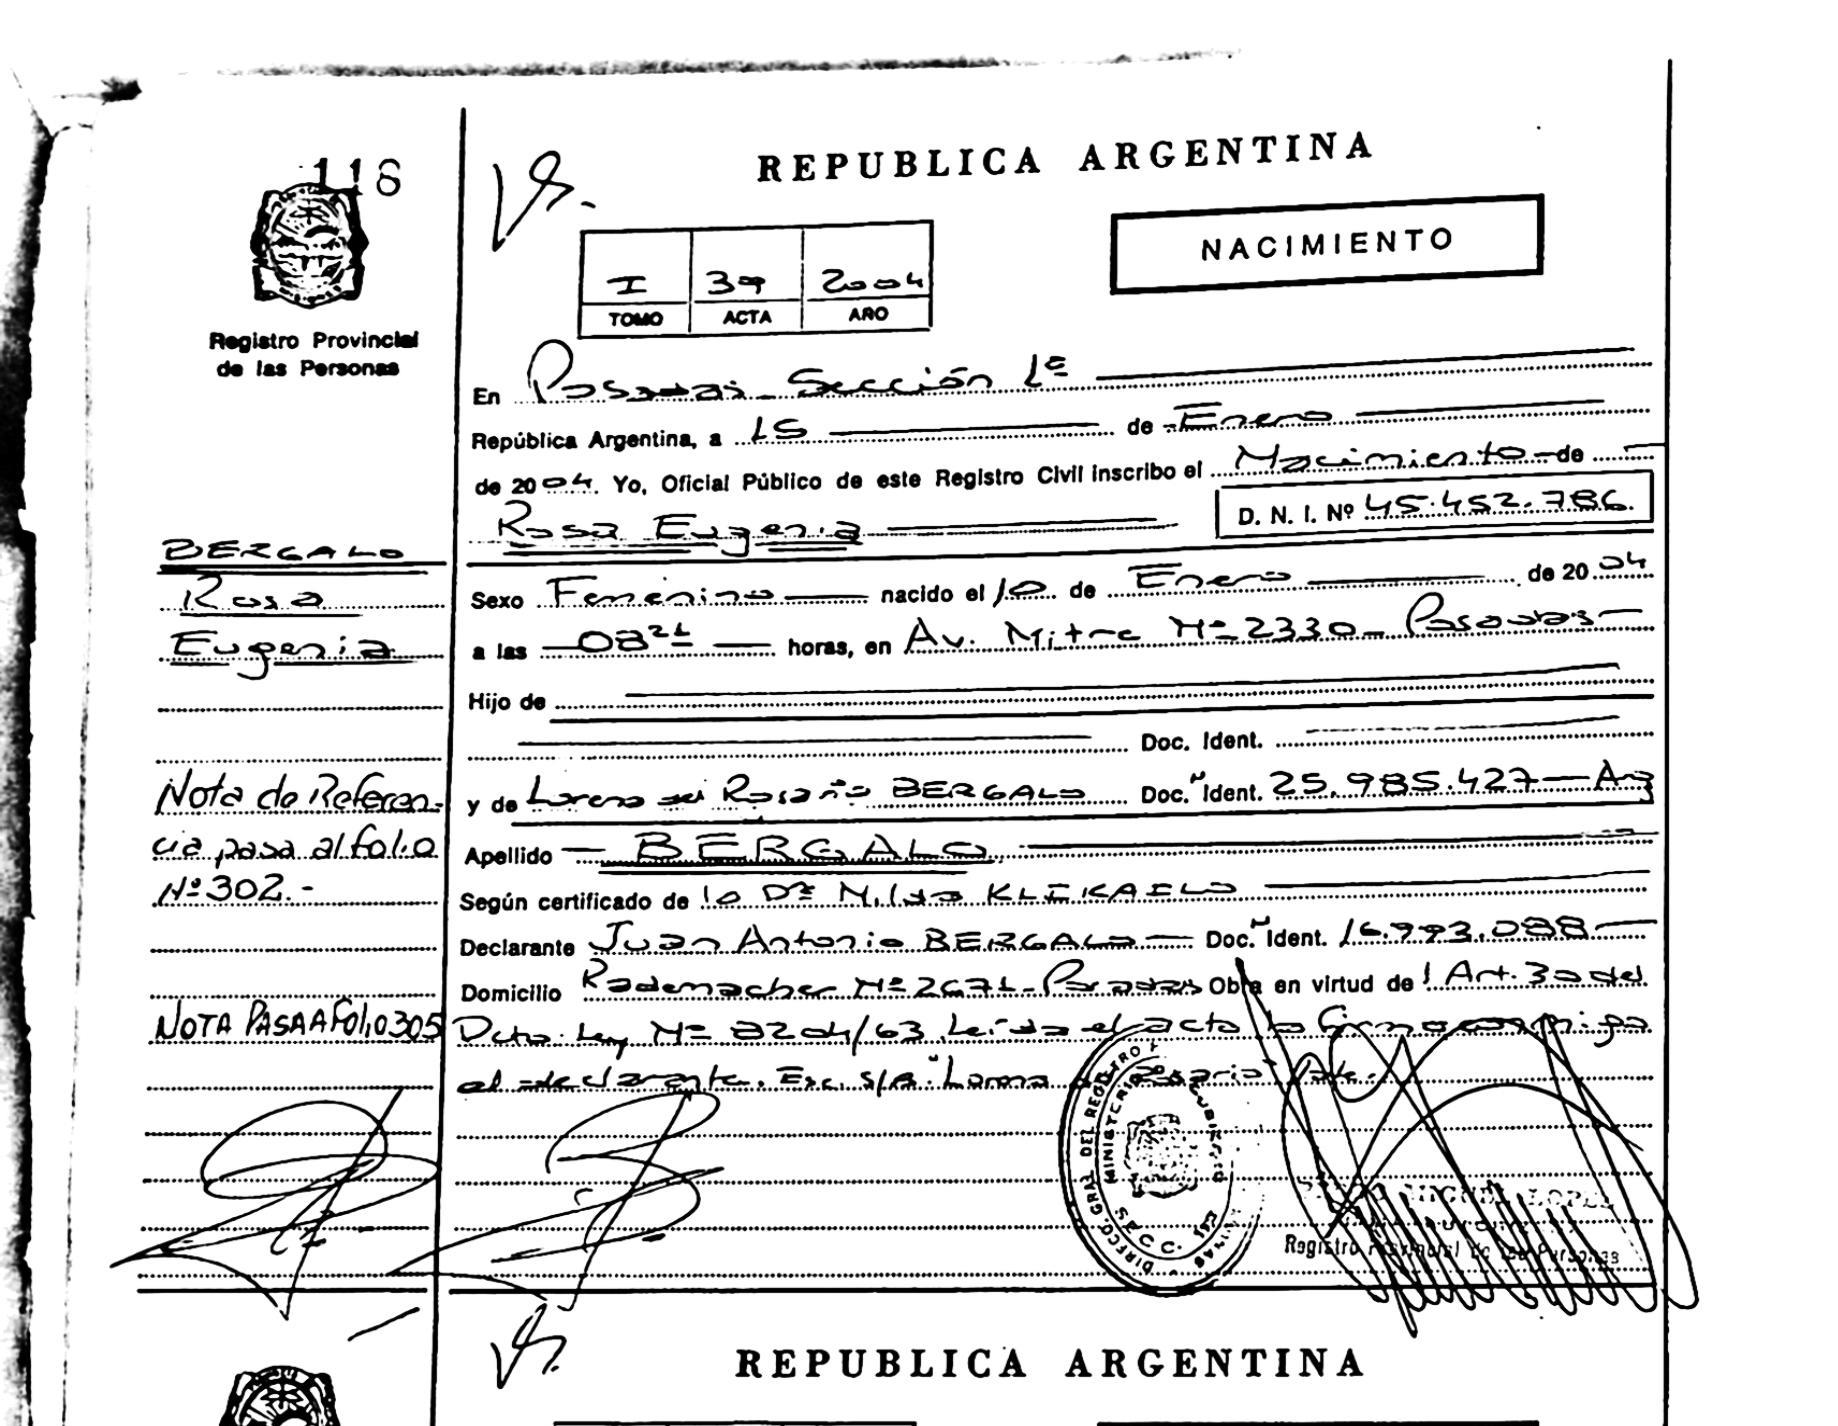 118
REPUBLICA ARGENTINA
NACIMIENTO
I 39 2004
TOMO ACTA AÑO
Registro Provincial
de las Personas
En Posadas Sección 1ª
República Argentina, a 15 de Enero
de 2004. Yo, Oficial Público de este Registro Civil inscribo el Nacimiento de
D. N. I. Nº 45.452.786.
Rosa Eugenia
BERGALO
Rosa
Eugenia
Sexo Femenino nacido el 10 de Enero de 2004
a las 08 21 horas, en Av. Mitre Nº 2330 - Posadas
Hijo de
Doc. Ident.
y de Lorena del Rosario BERGALO Doc. Ident. 25.985.427 - Arg
Apellido BERGALO
Según certificado de la Drª Nilda
Declarante Juan Antonio BERGALO Doc. Ident. 16.993.088
Domicilio Rademacher Nº 2671 - Posadas Obra en virtud del Art. 30 del
Dcto. Ley Nº 8204/63. Leida el acta la firma conmigo
el declarante. Esc. s/R. "Lorena Rosario" Vale.
Nota de Referen-
cia pasa al folio
Nº 302.-
NOTA PASA A FOLIO 305
DIRECC. GRAL. DEL REGISTRO
MINISTERIO
MIGUEL LOPEZ
Registro Provincial de las Personas
REPUBLICA ARGENTINA